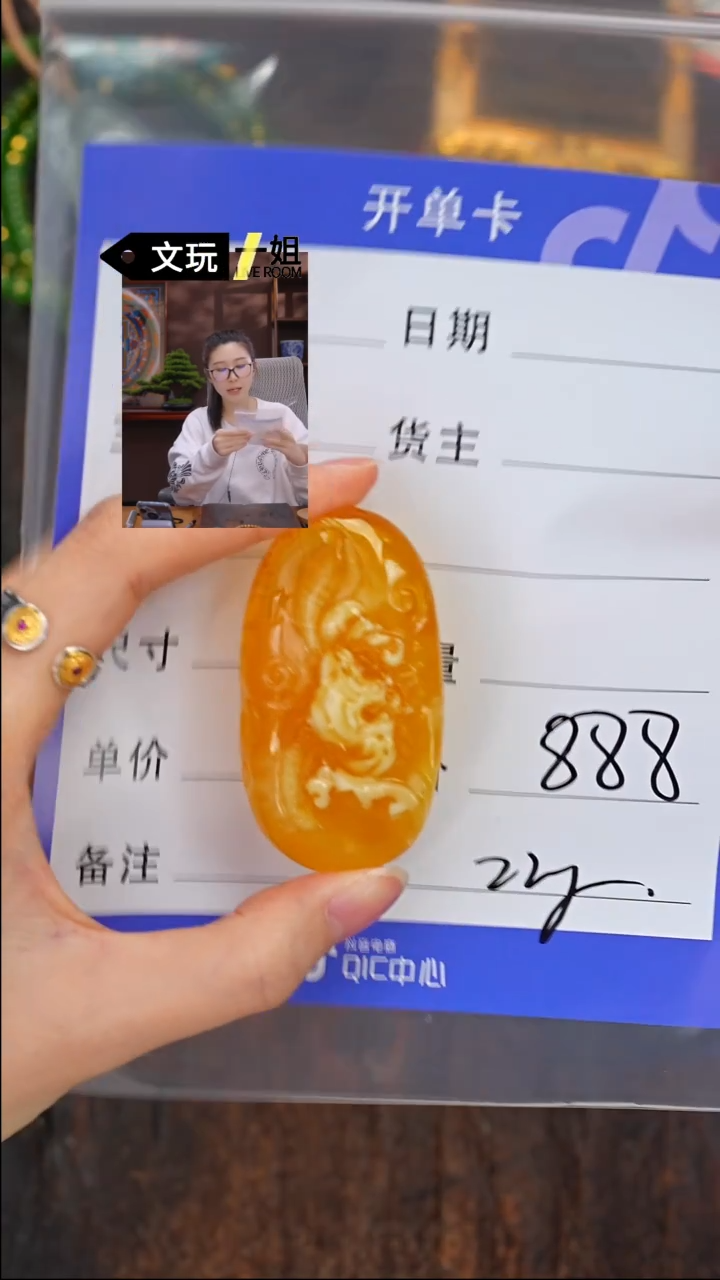 开单卡
文玩一姐
LIVE ROOM
日期
货主
尺寸
量
单价
888
备注
22g
抖音电商
QIC中心